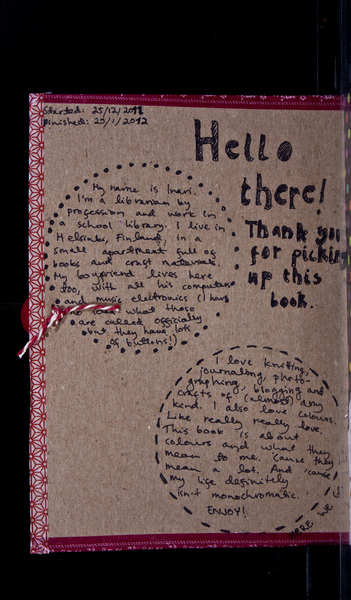 Started: 25/12/2011
Finished: 25/1/2012
Hello
there!
Thank you
for picking
up this
book.
My name is Inari.
I'm a librarian by
profession and work in
a school library. I live in
Helsinki, Finland, in a
small apartment full of
books and craft materials.
My boyfriend lives here
too, with all his computers
and music electronics (I have
no idea what those
are called officially
but they have lots
of buttons!)
I love knitting,
journaling, photo-
graphing, blogging and
crafts of (almost) any
kind. I also love colours.
Like really really love.
This book is about
colours and what they
mean to me. 'cause they
mean a lot. And 'cause
my life definitely
isn't monochromatic.
ENJOY!
HERE WE